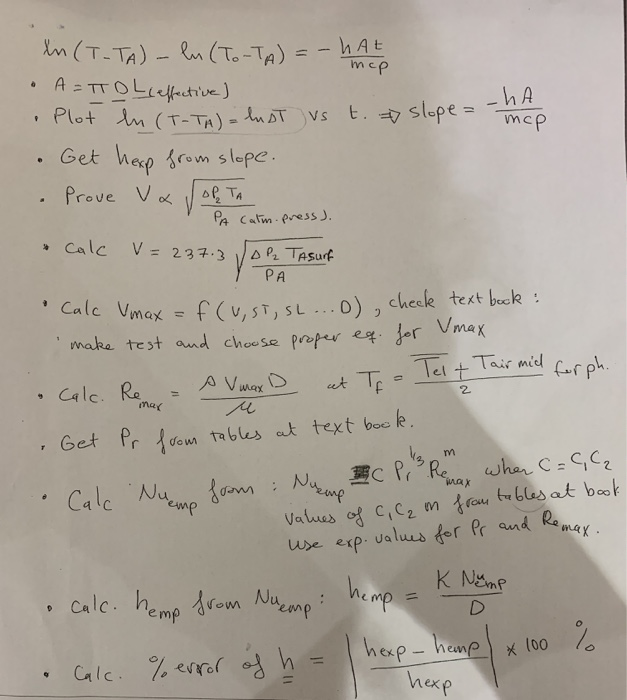 ln (T-TA) - ln (To-TA) = - hAt / mcp
• A = π D L(effective)
• Plot ln (T-TA) = ln ΔT vs t. ⇒ slope = -hA / mcp
• Get hexp from slope.
• Prove V α √(ΔP2 TA / PA (atm. press).
• Calc V = 237.3 √(ΔP2 TAsurf / PA)
• Calc Vmax = f (V, ST, SL ... D), check text book :
' make test and choose proper eq. for Vmax
• Calc. Re max = ρ Vmax D / μ at Tf = Tel + Tair mid / 2 for ph.
• Get Pr from tables at text book.
• Calc Nuemp from : Nuemp = C Pr^1/3 Re max^m when C = C1 C2
values of C1 C2 m from tables at book
use exp. values for Pr and Remax.
• Calc. hemp from Nuemp : hemp = K Nuemp / D
• Calc. % error of h = | hexp - hemp / hexp | * 100 %